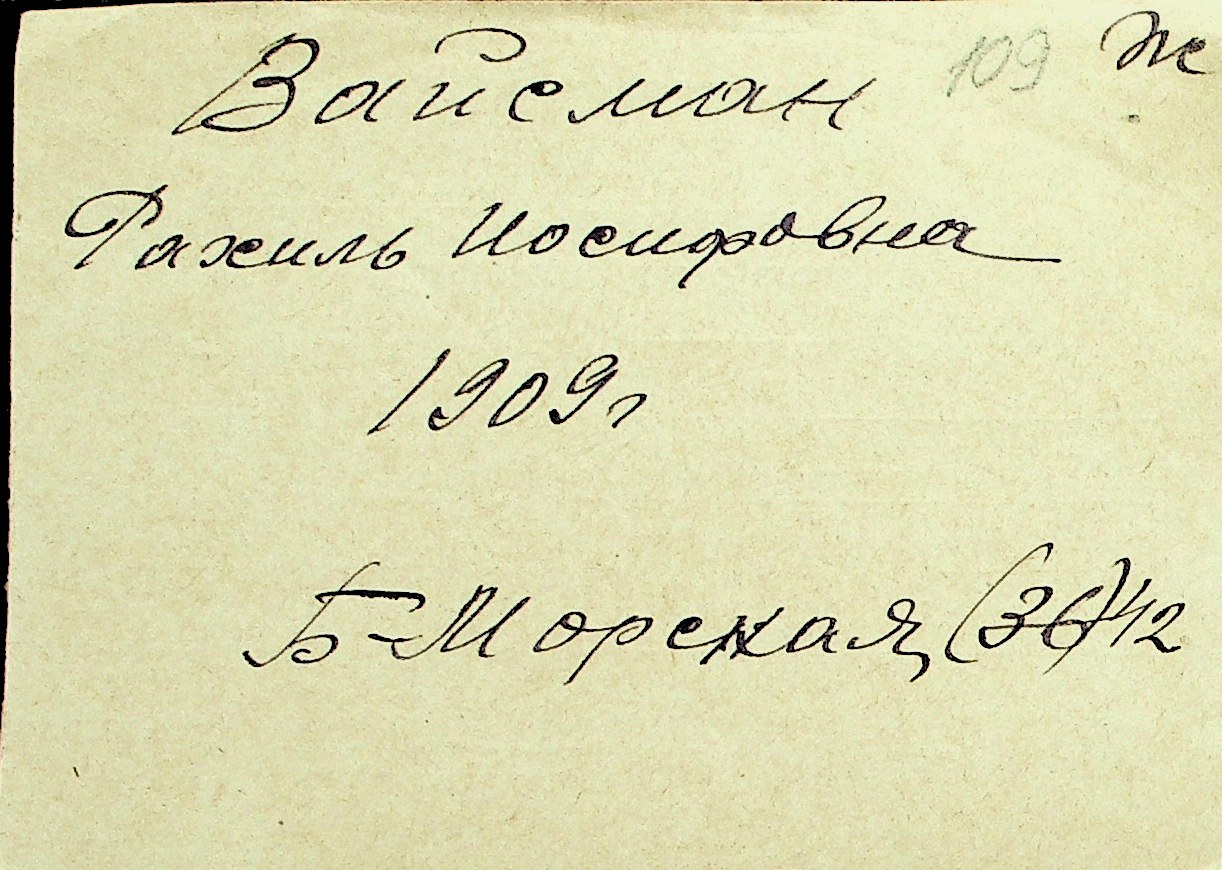 Вайсман 109 Ж
Рахиль Иосифовна
1909 г
Б-Морская, (36) 42